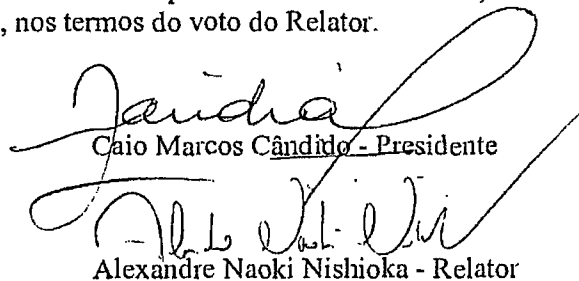 , nos termos do voto do Relator.
Caio Marcos Cândido - Presidente
Alexandre Naoki Nishioka - Relator